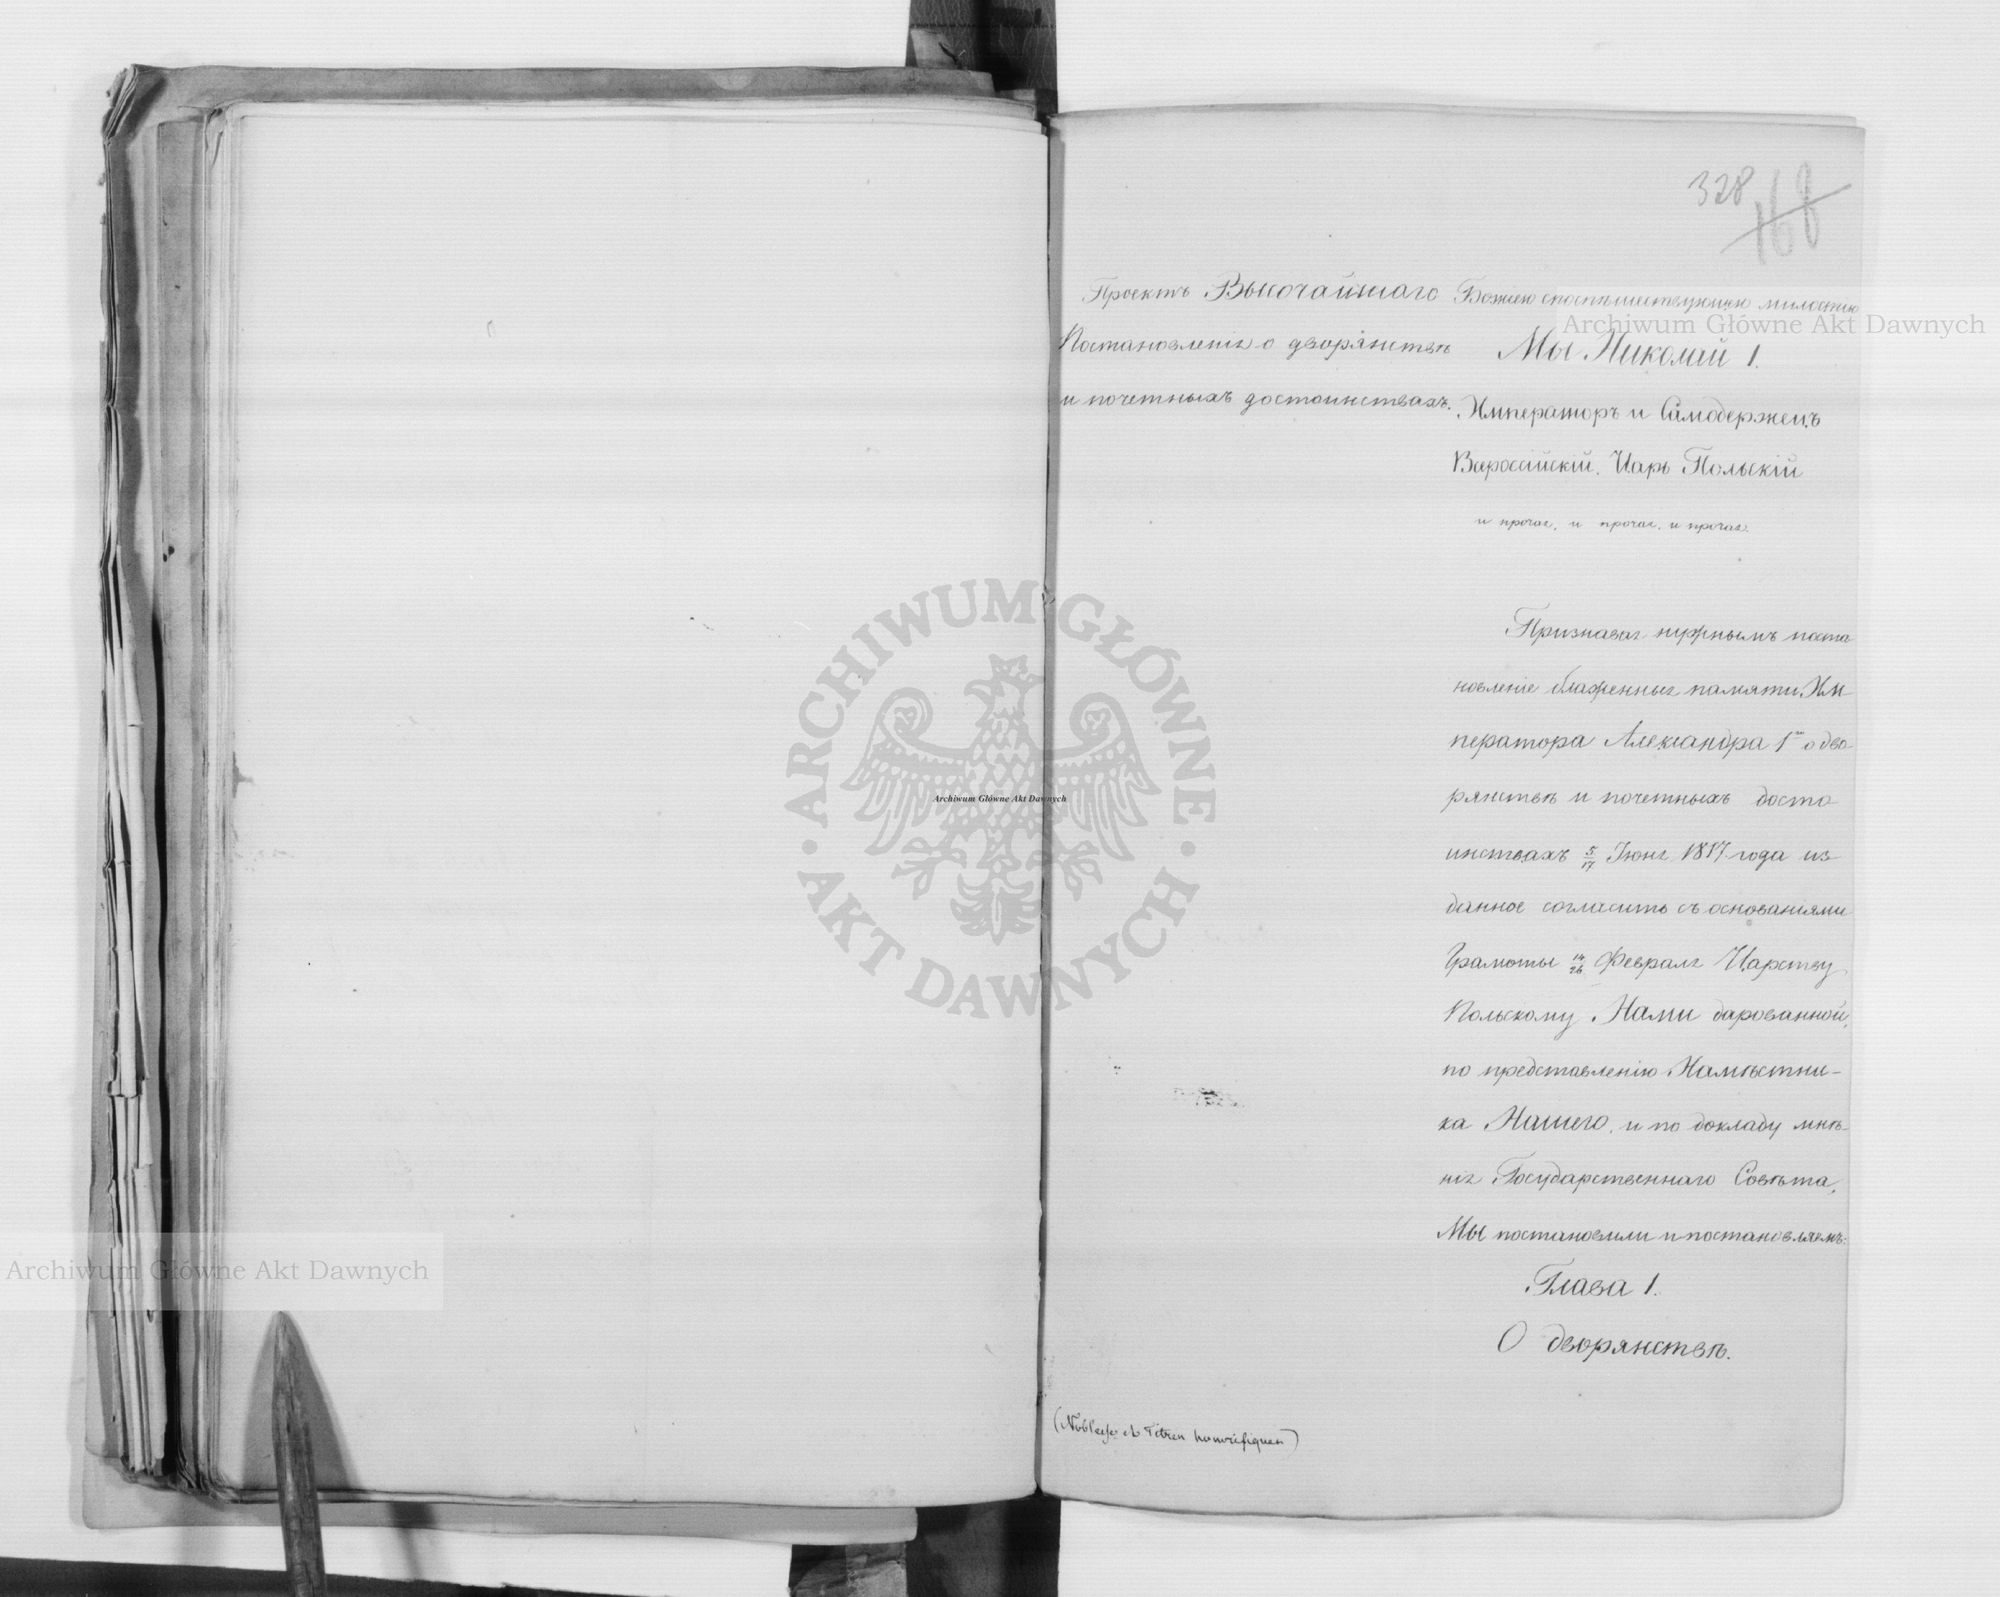 328
168
Проектъ Высочайшаго
Постановленія о дворянствѣ
и почетныхъ достоинствахъ.
Божіею споспѣшествующею милостію
Мы Николай I.
Императоръ и Самодержецъ
Всероссійскій. Царь Польскій
и прочая, и прочая, и прочая.
Признавая нужнымъ поста-
новленіе блаженныя памяти Им-
ператора Александра 1го о дво-
рянствѣ и почетныхъ досто-
инствахъ 5/17 Іюня 1817 года из-
данное согласить съ основаніями
Грамоты 14/26 Февраля Царству
Польскому Нами дарованной,
по представленію Намѣстни-
ка Нашего, и по докладу мнѣ-
нія Государственнаго Совѣта,
Мы постановили и постановляемъ:
Глава 1.
О дворянствѣ.
(Noblesse et Titres honorifiques)
Archiwum Główne Akt Dawnych
ARCHIWUM GŁÓWNE
AKT DAWNYCH
Archiwum Główne Akt Dawnych
Archiwum Główne Akt Dawnych